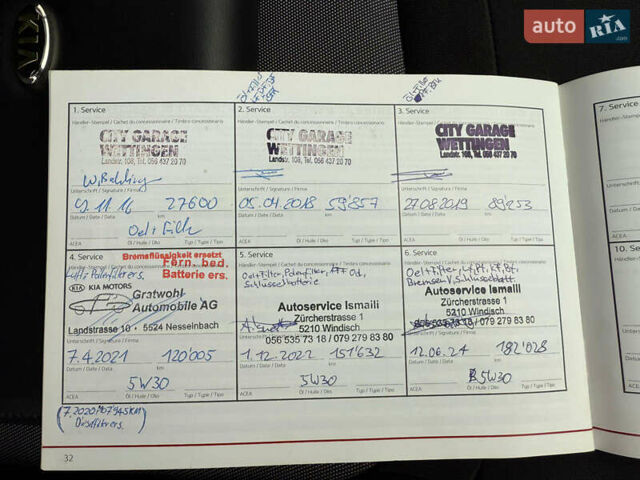 auto RIA .com
KIA
1. Service
Händler-Stempel / Cachet du concessionnaire / Timbro concessionario
CITY GARAGE
WETTINGEN
Landstr. 108, Tel. 056 437 20 70
Unterschrift / Signature / Firma
9.11.16 27600
Datum / Date / Data km
Oel+Filter
ACEA Öl / Huile / Olio Typ / Type / Tipo
2. Service
Händler-Stempel / Cachet du concessionnaire / Timbro concessionario
CITY GARAGE
WETTINGEN
Landstr. 108, Tel. 056 437 20 70
Unterschrift / Signature / Firma
05.04.2018 59'857
Datum / Date / Data km
ACEA Öl / Huile / Olio Typ / Type / Tipo
3. Service
Händler-Stempel / Cachet du concessionnaire / Timbro concessionario
CITY GARAGE
WETTINGEN
Landstr. 108, Tel. 056 437 20 70
Unterschrift / Signature / Firma
27.08.2019 89'253
Datum / Date / Data km
ACEA Öl / Huile / Olio Typ / Type / Tipo
4. Service
Bremsflüssigkeit ersetzt
Fern. bed.
Batterie ers.
Pollenfilter ers.
KIA KIA MOTORS
Gratwohl
Automobile AG
Landstrasse 18 • 5524 Nesselnbach
Unterschrift / Signature / Firma
7.4.2021 120'005
Datum / Date / Data km
5W30
ACEA Öl / Huile / Olio Typ / Type / Tipo
5. Service
Oel+Filter, Polenfilter,
Schlüsselbatterie
Autoservice Ismaili
Zürcherstrasse 1
5210 Windisch
056 535 73 18 / 079 279 83 80
Unterschrift / Signature / Firma
1.12.2022 151'632
Datum / Date / Data km
5W30
ACEA Öl / Huile / Olio Typ / Type / Tipo
6. Service
Oel+Filter,
Autoservice Ismaili
Zürcherstrasse 1
5210 Windisch
056 535 73 18 / 079 279 83 80
Unterschrift / Signature / Firma
12.06.24 182'028
Datum / Date / Data km
5W30
ACEA Öl / Huile / Olio Typ / Type / Tipo
32
7. Service
10. Ser